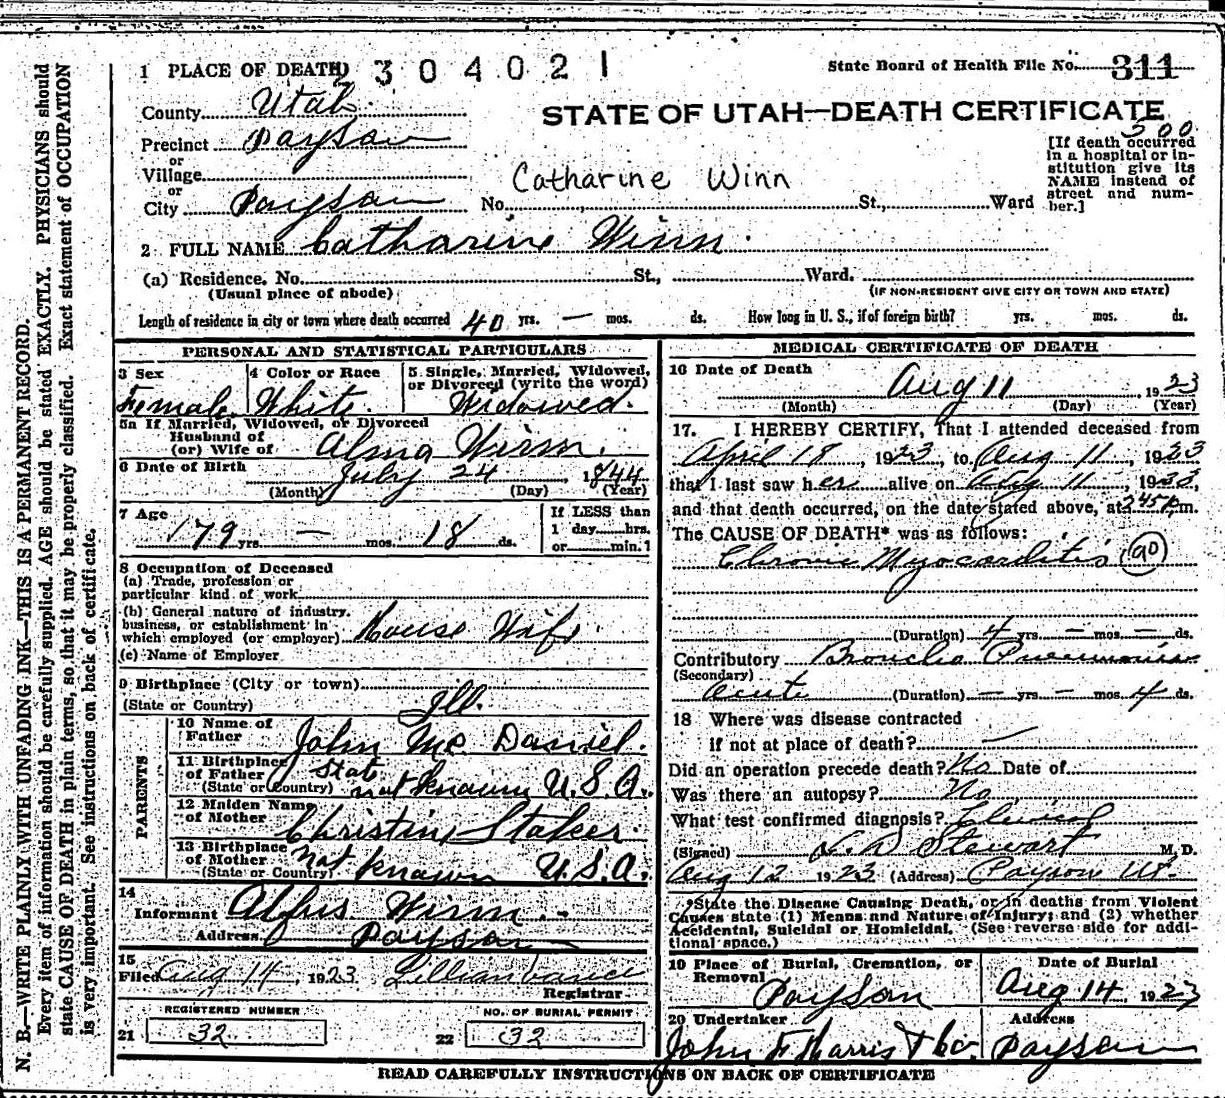 1 PLACE OF DEATH 2304021
State Board of Health File No. 311
County Utah
STATE OF UTAH—DEATH CERTIFICATE
Precinct Payson
500
[If death occurred in a hospital or institution give its NAME instead of street and number.]
or
Village
or
Catharine Winn
City Payson No. St., Ward
2 FULL NAME Catharine Winn
(a) Residence. No. St., Ward.
(Usual place of abode) (IF NON-RESIDENT GIVE CITY OR TOWN AND STATE)
Length of residence in city or town where death occurred 40 yrs. — mos. ds. How long in U. S., if of foreign birth? yrs. mos. ds.
PERSONAL AND STATISTICAL PARTICULARS
3 Sex 4 Color or Race 5 Single, Married, Widowed,
or Divorced (write the word)
Female White Widowed.
5a If Married, Widowed, or Divorced
Husband of
(or) Wife of Alma Winn.
6 Date of Birth July 24, 1844
(Month) (Day) (Year)
7 Age
If LESS than
1 day hrs.
or min.
79 yrs. — mos. 18 ds.
8 Occupation of Deceased
(a) Trade, profession or
particular kind of work
(b) General nature of industry,
business, or establishment in
which employed (or employer) House Wife.
(c) Name of Employer
9 Birthplace (City or town)
(State or Country) Ill.
PARENTS
10 Name of
Father John Mc Daniel.
11 Birthplace
of Father State
(State or Country) not known U.S.A.
12 Maiden Name
of Mother Christine Staker.
13 Birthplace
of Mother not
(State or Country) known U.S.A.
14
Informant Alfus Winn.
Address Payson
15
Filed Aug 14, 1923 Lillian Vance
Registrar
REGISTERED NUMBER NO. OF BURIAL PERMIT
21 32 22 32
MEDICAL CERTIFICATE OF DEATH
16 Date of Death
Aug 11 1923
(Month) (Day) (Year)
17. I HEREBY CERTIFY, That I attended deceased from
April 18, 1923, to Aug 11, 1923
that I last saw her alive on Aug 11, 1923,
and that death occurred, on the date stated above, at 245 P.m.
The CAUSE OF DEATH* was as follows:
Chronic Myocarditis 90
(Duration) 4 yrs. — mos. — ds.
Contributory Broncho Pneumonia
(Secondary)
Acute (Duration) — yrs. — mos. 4 ds.
18 Where was disease contracted
if not at place of death? —
Did an operation precede death? No Date of
Was there an autopsy? No
What test confirmed diagnosis? Clinical
(Signed) L. D. Stewart M. D.
Aug 12 1923 (Address) Payson Ut.
*State the Disease Causing Death, or in deaths from Violent
Causes state (1) Means and Nature of Injury; and (2) whether
Accidental, Suicidal or Homicidal. (See reverse side for addi-
tional space.)
19 Place of Burial, Cremation, or
Removal
Payson
Date of Burial
Aug 14, 1923
20 Undertaker Address
John F Harris & Co. Payson
READ CAREFULLY INSTRUCTIONS ON BACK OF CERTIFICATE
N. B.—WRITE PLAINLY WITH UNFADING INK—THIS IS A PERMANENT RECORD.
Every item of information should be carefully supplied. AGE should be stated EXACTLY. PHYSICIANS should
state CAUSE OF DEATH in plain terms, so that it may be properly classified. Exact statement of OCCUPATION
is very important. See instructions on back of certificate.